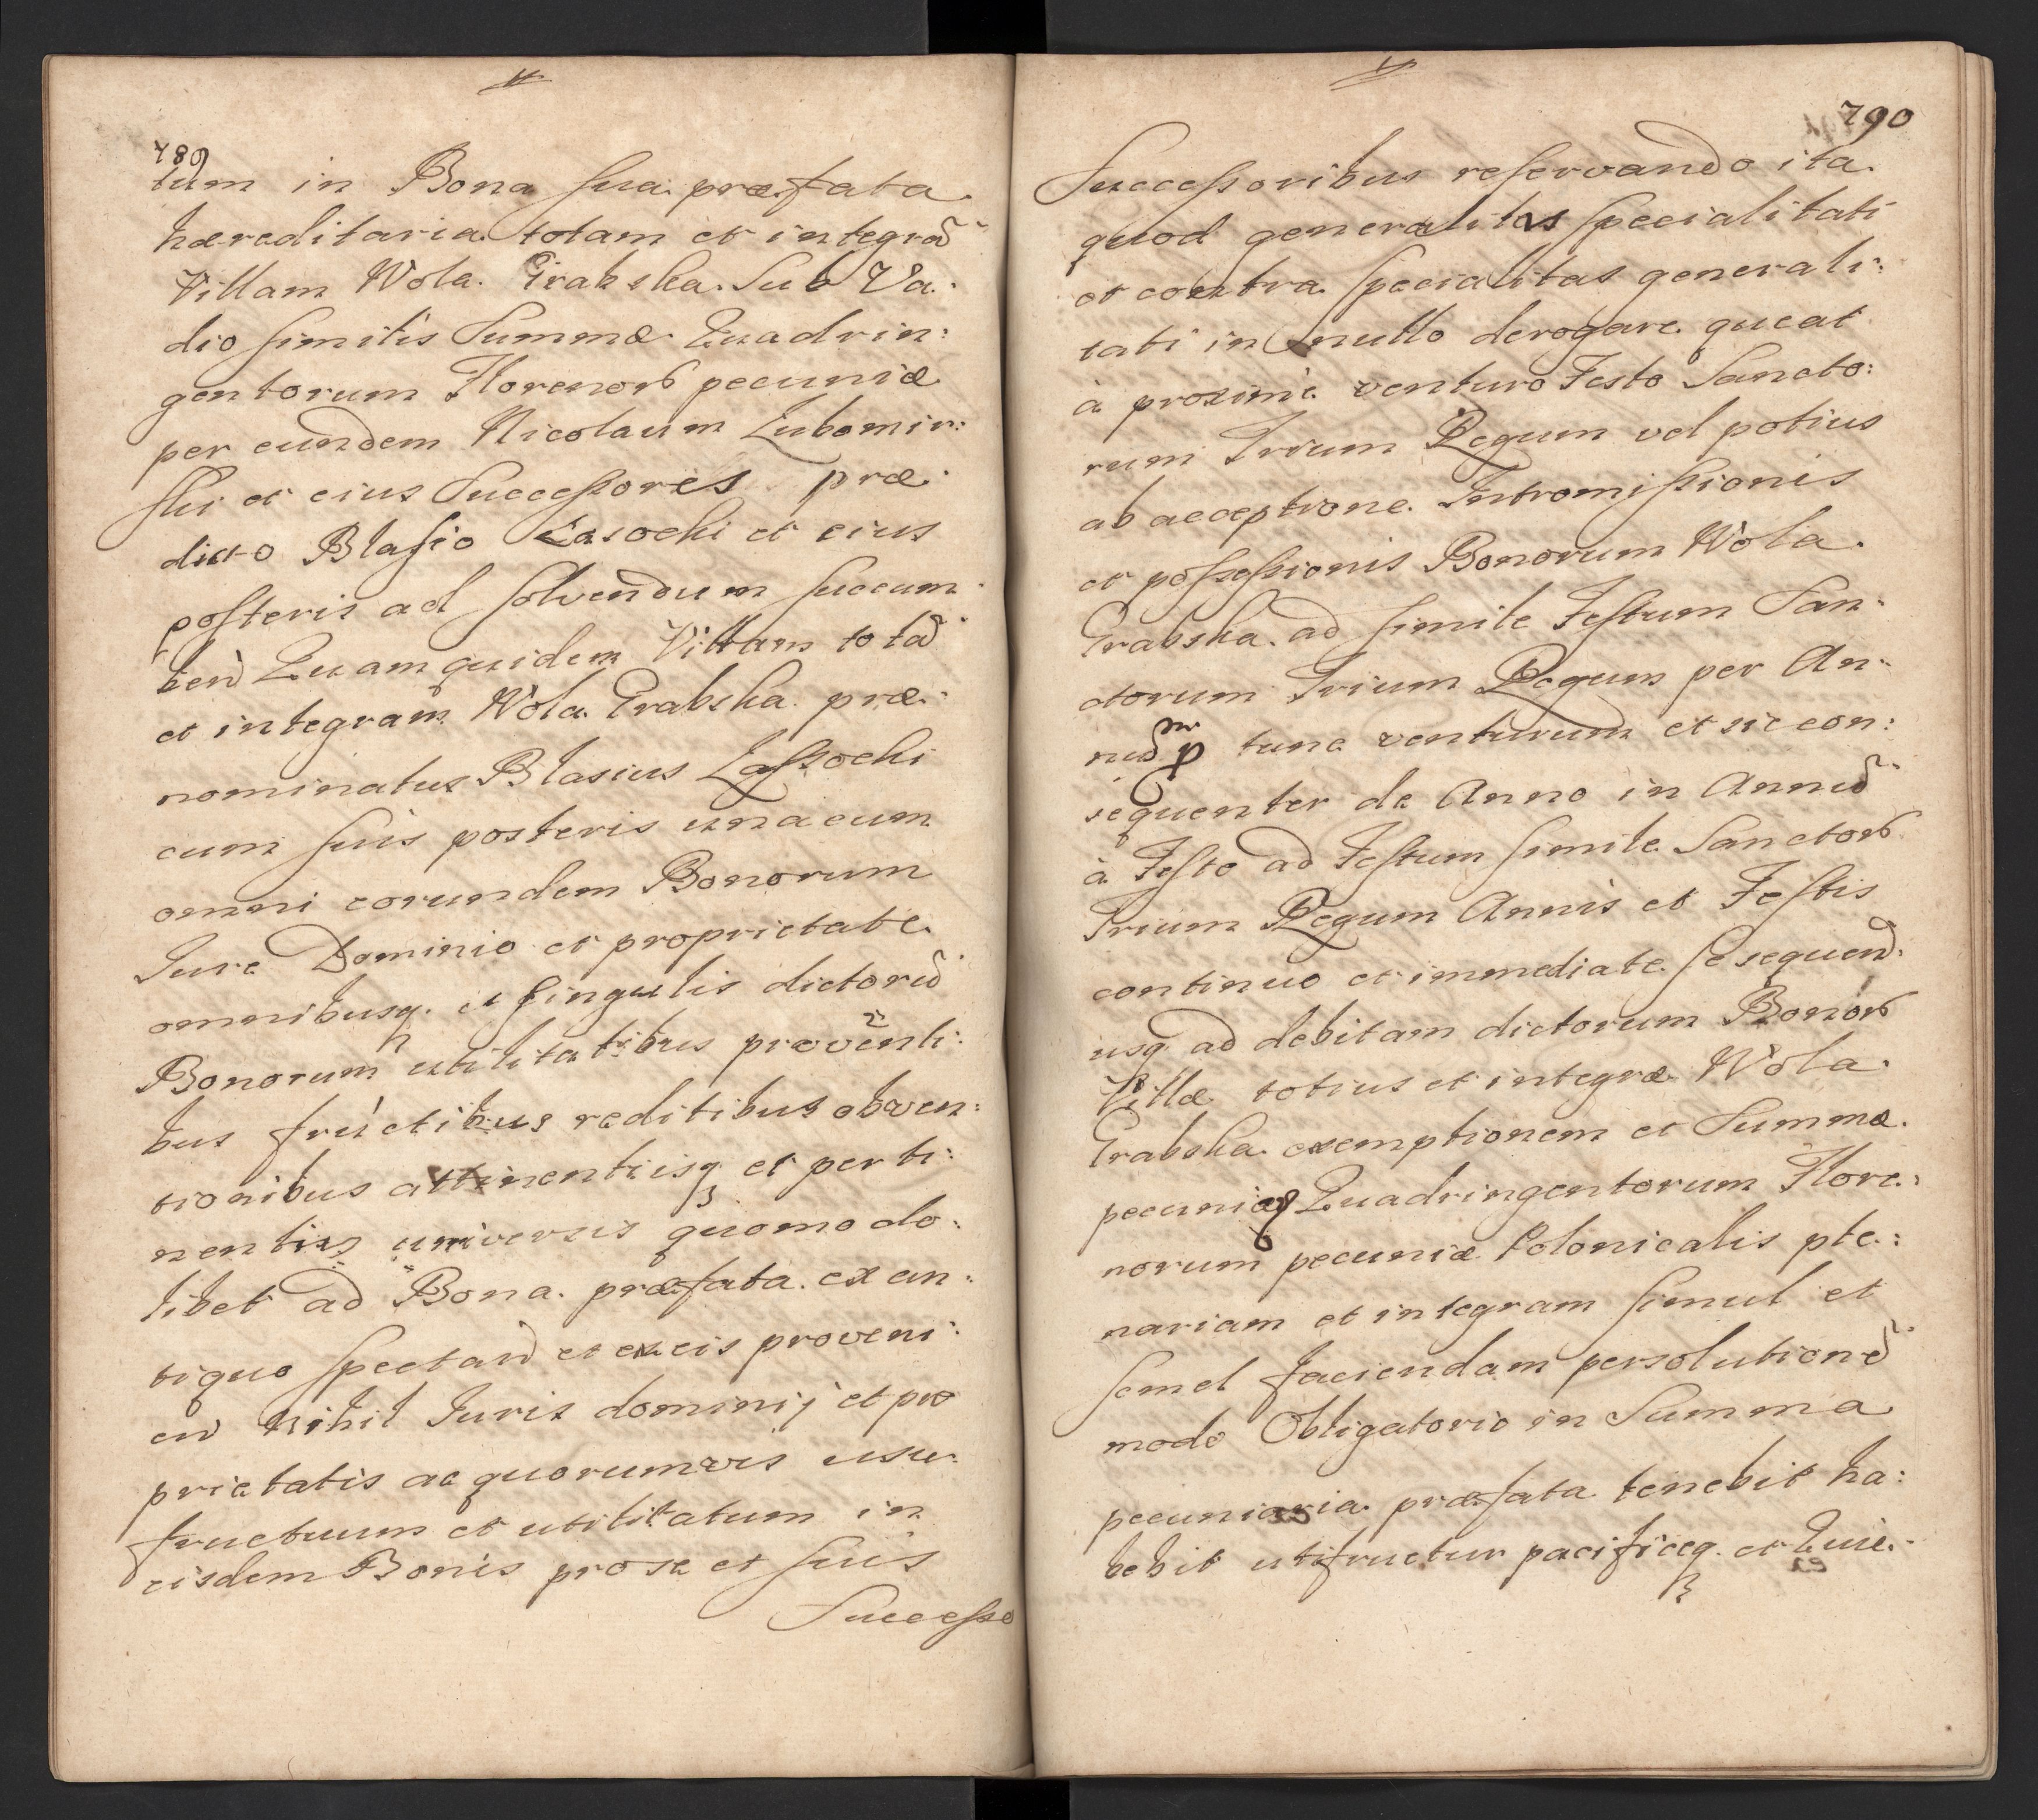 789
tum in Bona sua præfata
hæreditaria totam et integrã
Villam Wola Grabska Sub Va.
dio similis Summæ Quadrin:
gentorum Florenorũ pecuniæ
per eundem Nicolaum Lubomir:
ski et eius Successores præ:
dicto Blasio Lasocki et eius
posteris ad solvendum succum
ben̄ Quam quidem Villam totã
et integram Wola Grabska præ:
nominatus Blasius Lassocki
cum suis posteris unacum
omni eorundem Bonorum
Jure Dominio et proprietate
omnibusq. et singulis dictorũ
Bonorum utilitatibus proventi:
bus fructibus reditibus obven:
tionibus attinentiisq et perti:
nentiis universis quomodo:
libet ad Bona præfata ex an:
tiquo spectan̄ et ex eis proveni:
en̄ Nihil Juris dominij et pro
prietatis ac quorumvis usu:
fructuum et utilitatum in
eisdem Bonis pro se et suis
Successo
790
Successoribus reservando ita
quod generalitas specialitati
et contra specialitas generali:
tati in nullo derogare queat
à proximè venturo Festo Sancto:
rum Trium Regum vel potius
ab acceptione Intromissionis
et possessionis Bonorum Wola
Grabska ad simile Festum San:
ctorum Trium Regum per An:
nũ tunc venturum et sic con:
sequenter de Anno in Annũ
à Festo ad Festum simile Sanctorũ
Trium Regum Annis et Festis
continuo et immediate se sequend:
usq ad debitam dictorum Bonorũ
Villæ totius et integræ Wola
Grabska exemptionem et Summæ
pecuniæ Quadringentorum Flore:
norum pecuniæ Polonicalis ple:
nariam et integram simul et
semel faciendam persolutionẽ
modo Obligatorio in Summa
pecuniaria præfata tenebit ha:
bebit utifruetur pacificeq. et Quie: